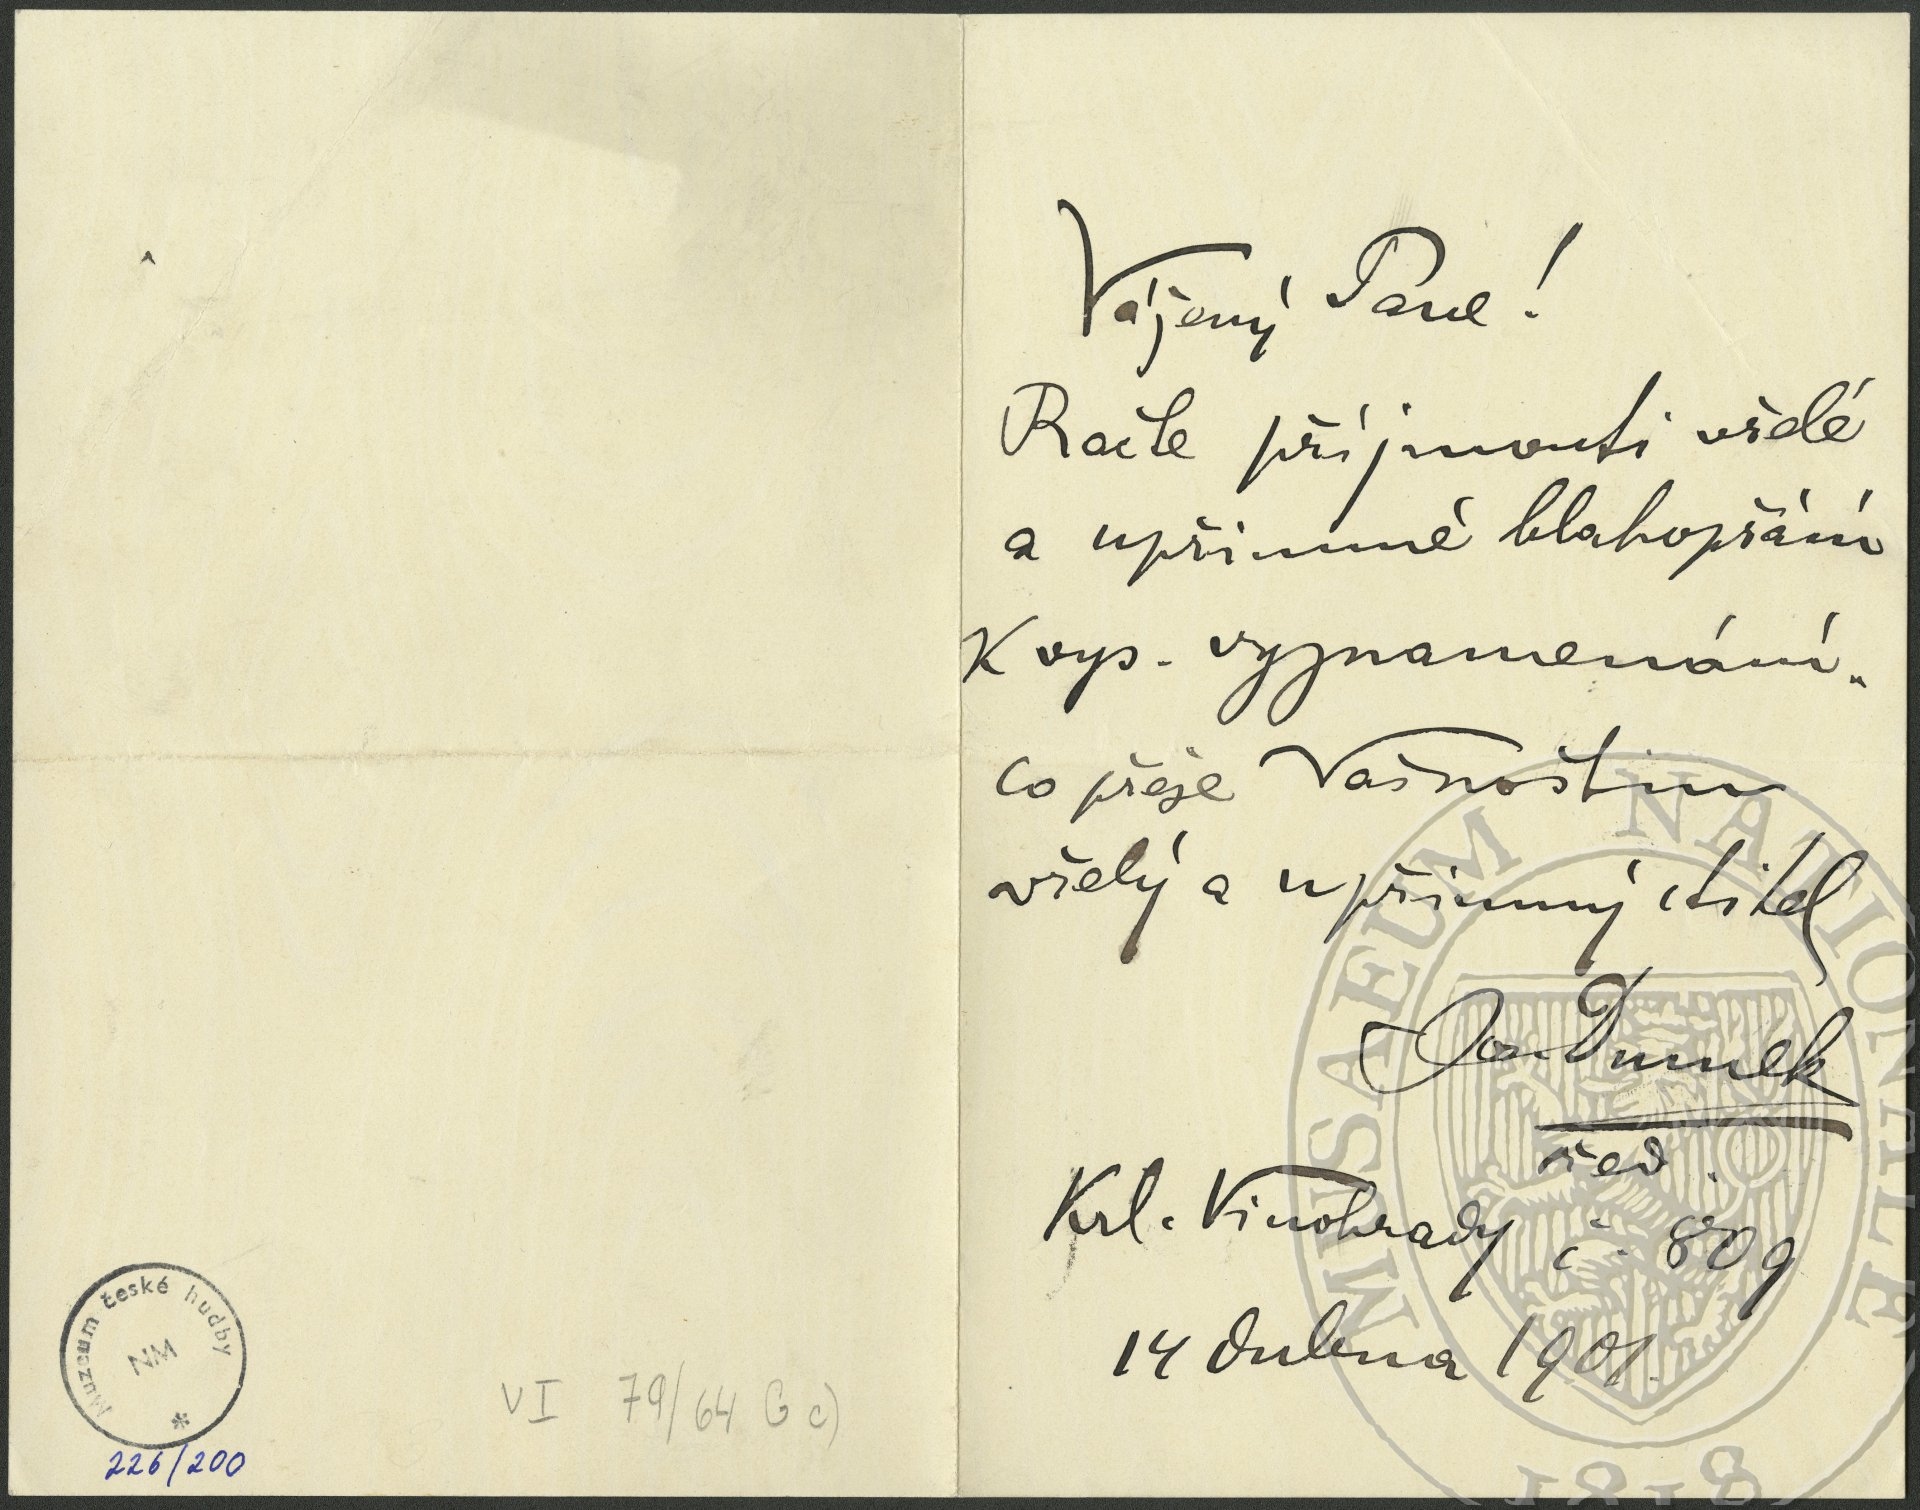 Muzeum české hudby
NM
226/200
VI 79/64 G c)
Vážený Pane!
Račte přijmouti vřelé
a upřimné blahopřání
K vys. vyznamenání.
co přeje Vašnostin
vřelý a upřimný ctitel
Jos. Dumek
řed.
Krl. Vinohrady č. 809
14 dubna 1901.
MUSAEUM NATIONALE
1818